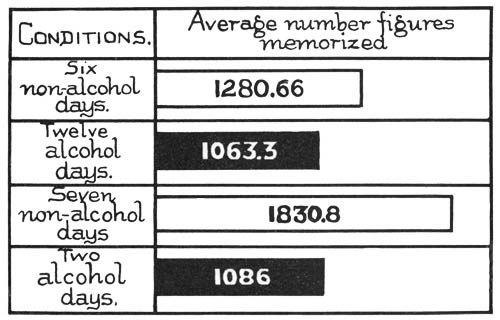 CONDITIONS.
Average number figures
memorized
Six
non-alcohol
days.
1280.66
Twelve
alcohol
days.
1063.3
Seven
non-alcohol
days
1830.8
Two
alcohol
days.
1086